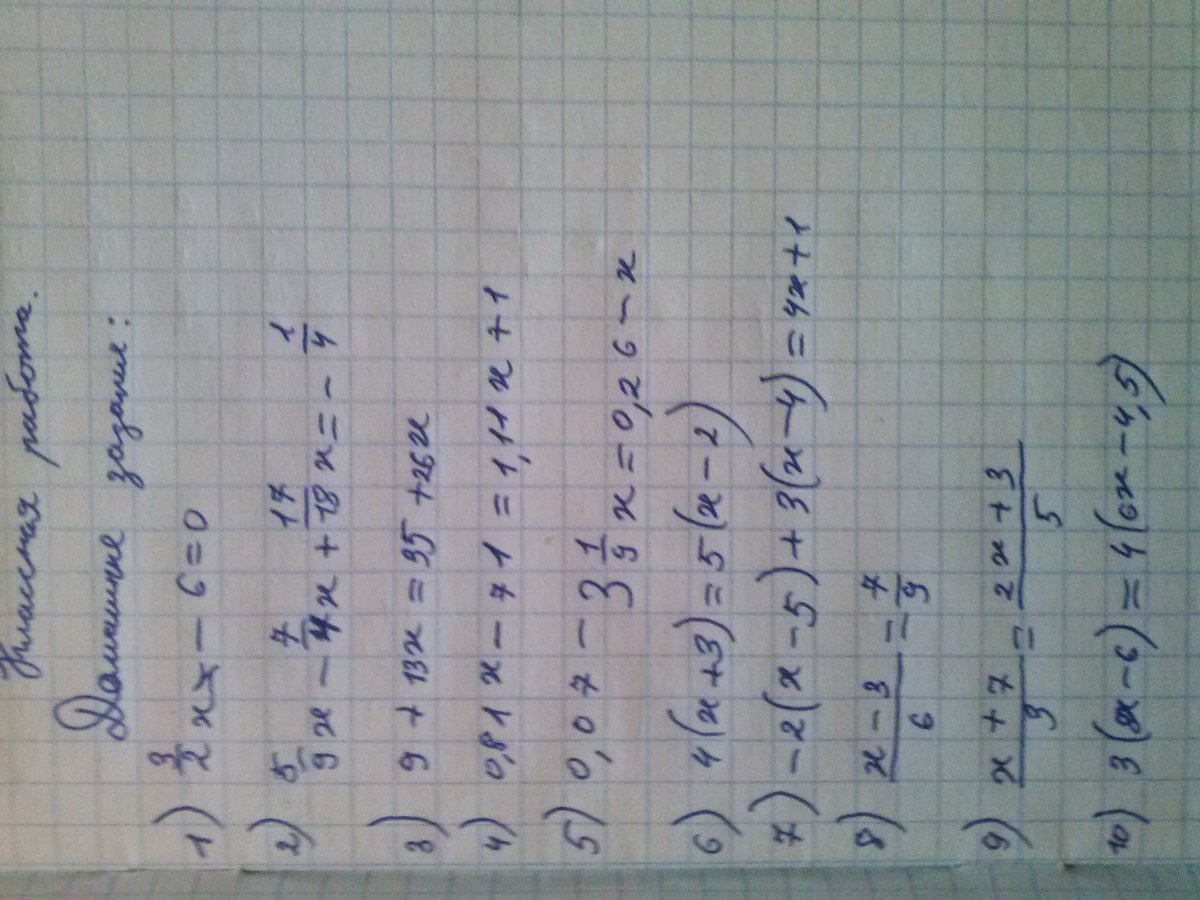 Классная работа.
Домашнее задание:
1) 3/2 x - 6 = 0
2) 5/9 x - 7/4 x + 17/18 x = - 1/4
3) 9 + 13x = 35 + 26x
4) 0,81 x - 71 = 1,11 x + 1
5) 0,07 - 3 1/9 x = 0,26 - x
6) 4(x+3) = 5(x-2)
7) -2(x-5)+3(x-4) = 4x+1
8) x-3/6 = 7/9
9) x+7/3 = 2x+3/5
10) 3(8x-6) = 4(6x-4,5)